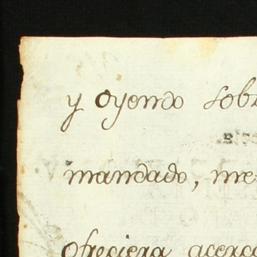 y oyendo sob
mandado, me
ofreciera acerca